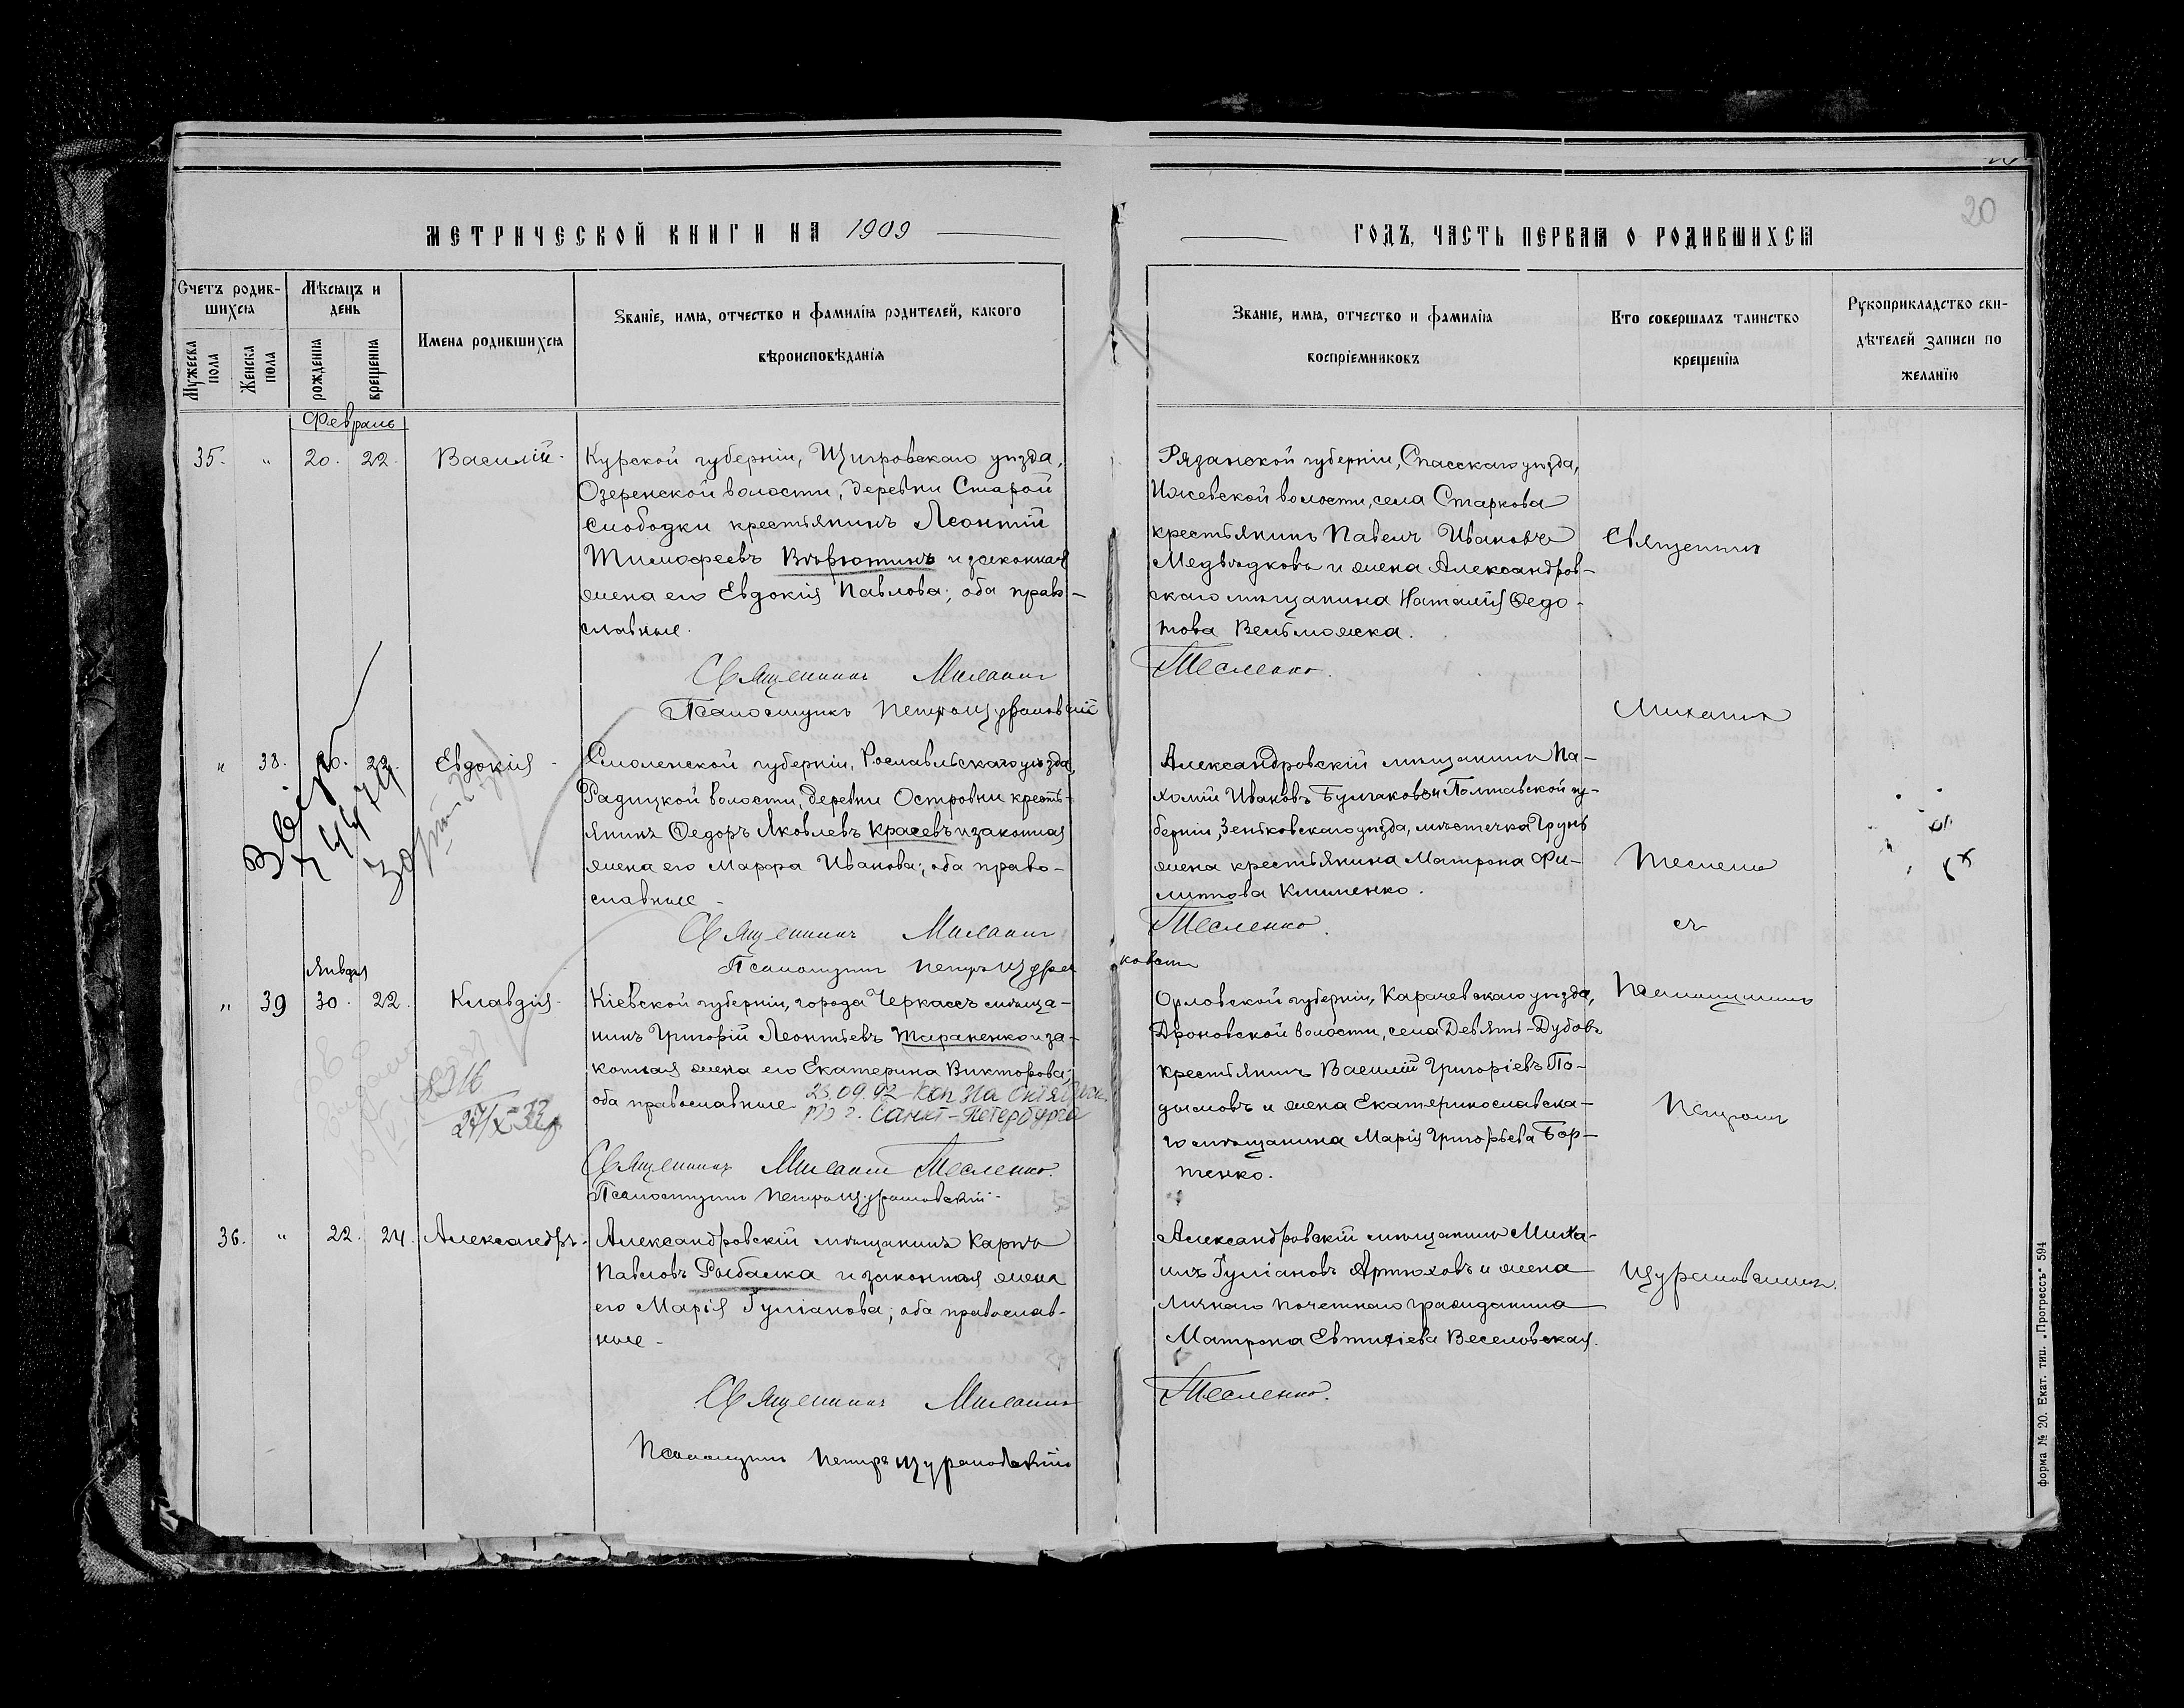 20
МЕТРИЧЕСКОЙ КНИГИ НА 1909
ГОДЪ, ЧАСТЬ ПЕРВАЯ О РОДИВШИХСЯ
Счетъ родив-
шихся
Мужеска пола
Женска пола
Мѣсяцъ и
день
рожденія
крещенія
Имена родившихся
Званіе, имя, отчество и фамилія родителей, какого
вѣроисповѣданія
Званіе, имя, отчество и фамилія
воспріемниковъ
Кто совершалъ таинство
крещенія
Рукоприкладство сви-
дѣтелей записи по
желанію
Февраль
35. " 20. 22. Василій.
Курской губерніи, Щигровскаго уѣзда,
Озеренской волости, деревни Старой
Слободки крестьянинъ Леонтій
Тимофеевъ Вѣрютинъ и законная
жена его Евдокія Павлова; оба право-
славные.
Священникъ Михаилъ
Псаломщикъ Петръ Цурановскій
Рязанской губерніи, Спасскаго уѣзда,
Ижевской волости, села Старкова
крестьянинъ Павелъ Ивановъ
Медвѣдковъ и жена Александров-
скаго мѣщанина Наталія Федо-
това Вельможка.
Тесленко.
" 38. 20. 22. Евдокія
Смоленской губерніи, Рославльскаго уѣзда,
Радицкой волости, деревни Островни кресть-
янинъ Федоръ Яковлевъ Красевъ и законная
жена его Марфа Иванова; оба право-
славные
Священникъ Михаилъ
Псаломщикъ Петръ Цура
новскій
Александровскій мѣщанинъ Па-
хомій Ивановъ Булгаковъ и Полтавской гу-
берніи, Зеньковскаго уѣзда, мѣстечка Грунь
жена крестьянина Матрона Фи-
липпова Клименко.
Тесленко.
Января
" 39 30. 22. Клавдія
Кіевской губерніи, города Черкассъ мѣща-
нинъ Григорій Леонтьевъ Тараненко и за-
конная жена его Екатерина Викторова;
оба православные
23.09.92 Коп
г. Санкт-Петербурга
27/X-32
Священникъ Михаилъ Тесленко.
Псаломщикъ Петръ Цурановскій.
Орловской губерніи, Карачевскаго уѣзда,
Дроновской волости, села Девять-Дубовъ
крестьянинъ Василій Григоріевъ По-
дымовъ и жена Екатеринославска-
го мѣщанина Марія Григорьева Бор-
тенко.
36. " 22. 24. Александръ.
Александровскій мѣщанинъ Карпъ
Павловъ Рыбалка и законная жена
его Марія Гуліанова; оба православ-
ные
Священникъ Михаилъ
Псаломщикъ Петръ Цурановскій
Александровскій мѣщанинъ Миха-
илъ Гуліановъ Артюховъ и жена
личнаго почетнаго гражданина
Матрона Евтихіева Веселовская.
Тесленко.
Священникъ
Михаилъ
Тесленко
съ
Псаломщикомъ
Петромъ
Цурановскимъ.
форма № 20. Екат. тип. „Прогрессъ" 594